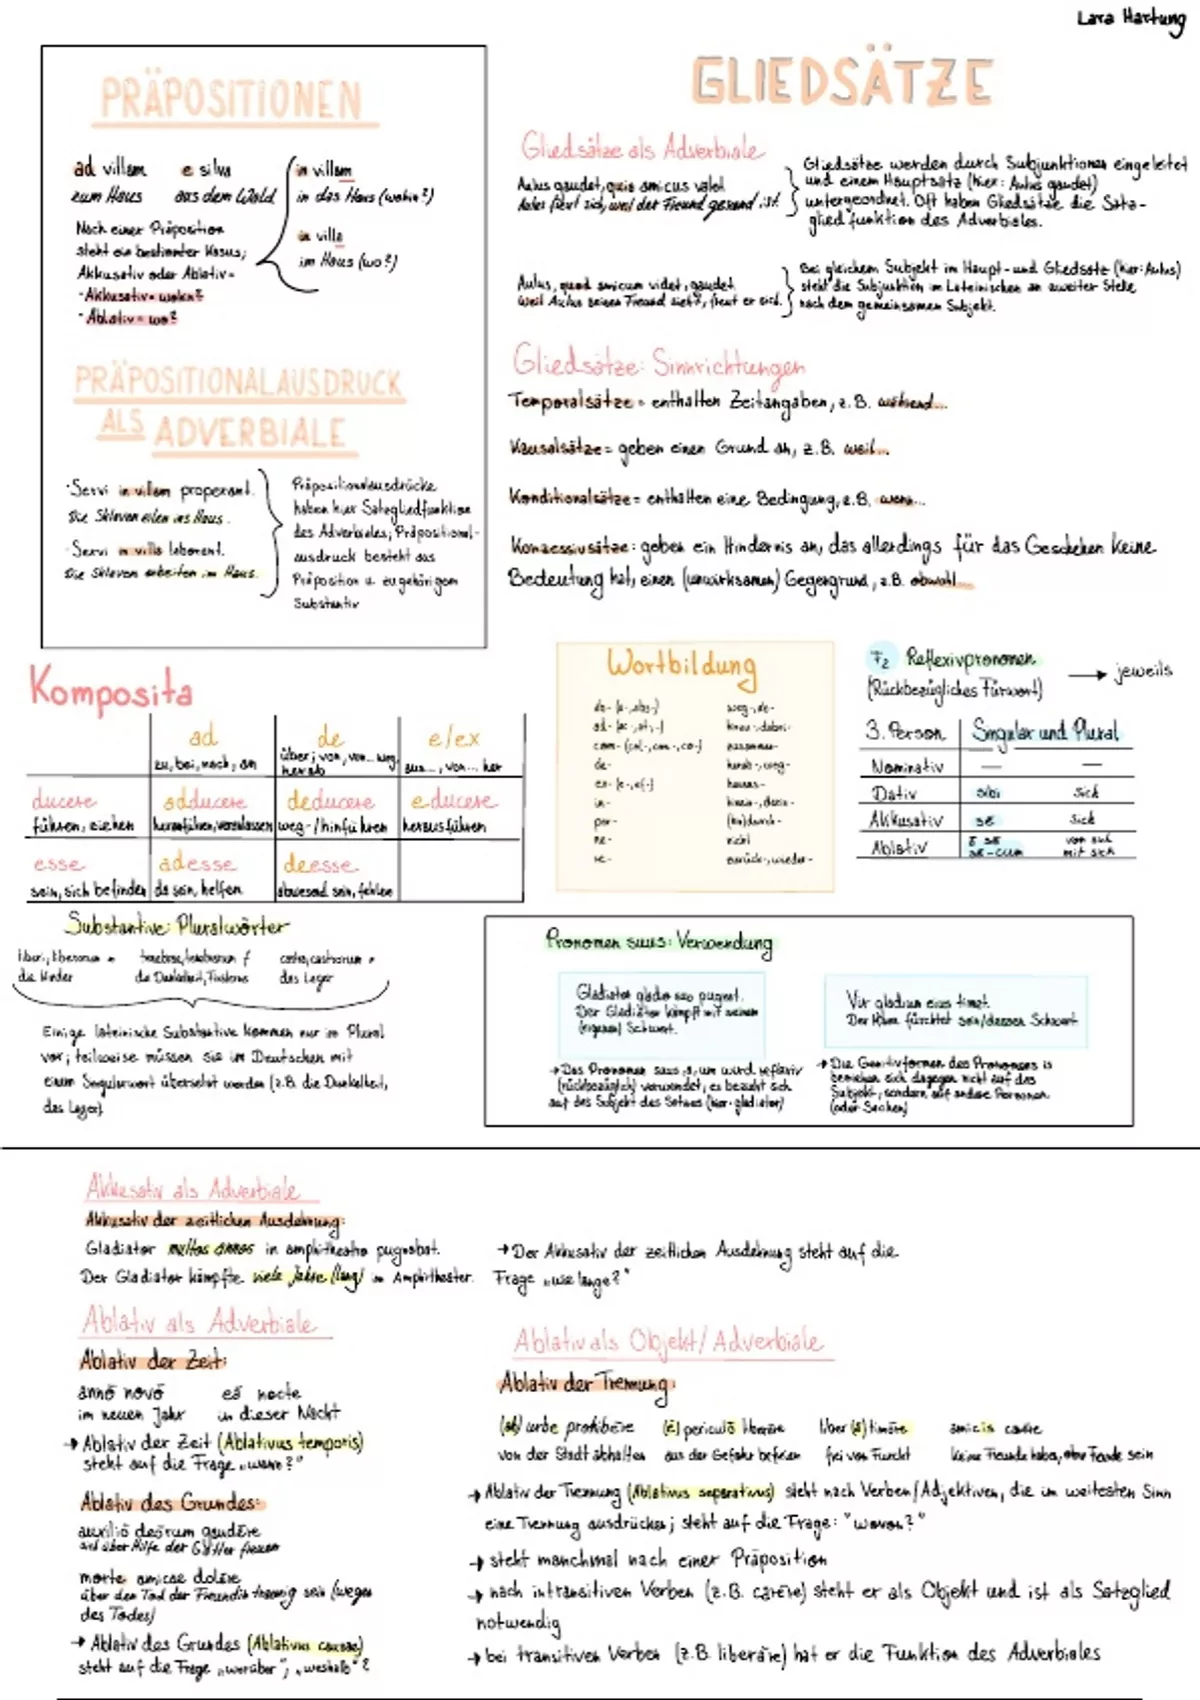 Lara Hartung
PRÄPOSITIONEN
ad villam
e silva
in villam
zum Haus
aus dem Wald
in das Haus (wohin?)
Nach einer Präposition
steht ein bestimmter Kasus;
Akkusativ oder Ablativ
in villa
im Haus (wo?)
· Akkusativ = wohin?
· Ablativ = wo?
PRÄPOSITIONALAUSDRUCK
ALS ADVERBIALE
· Servi in villam properant.
Die Sklaven eilen ins Haus.
· Servi in villa laborant.
Die Sklaven arbeiten im Haus.
Präpositionalausdrücke
haben hier Satzgliedfunktion
des Adverbiales; Präpositional-
ausdruck besteht aus
Präposition u. zugehörigem
Substantiv
GLIEDSÄTZE
Gliedsätze als Adverbiale
Aulus gaudet, quia amicus valet
Aulus freut sich, weil der Freund gesund ist.
Gliedsätze werden durch Subjunktionen eingeleitet
und einem Hauptsatz (hier: Aulus gaudet)
untergeordnet. Oft haben Gliedsätze die Satz-
gliedfunktion des Adverbiales.
Aulus, quod amicum videt, gaudet.
Weil Aulus seinen Freund sieht, freut er sich.
Bei gleichem Subjekt im Haupt- und Gliedsatz (hier: Aulus)
steht die Subjunktion im Lateinischen an zweiter Stelle
nach dem gemeinsamen Subjekt.
Gliedsätze: Sinnrichtungen
Temporalsätze = enthalten Zeitangaben, z.B. während...
Kausalsätze = geben einen Grund an, z.B. weil...
Konditionalsätze = enthalten eine Bedingung, z.B. wenn...
Konzessivsätze: geben ein Hindernis an, das allerdings für das Geschehen keine
Bedeutung hat, einen (unwirksamen) Gegengrund, z.B. obwohl...
Komposita
ad
de
e/ex
zu, bei, nach, an
über; von, von... weg,
herab
aus..., von... her
ducere
adducere
deducere
educere
führen, ziehen
heranführen, veranlassen
weg-/hinführen
herausführen
esse
adesse
deesse
sein, sich befinden
da sein, helfen
abwesend sein, fehlen
Wortbildung
ab- (a-, abs-)
weg-, de-
ad- (ac-, at-, )
hinzu-, dabei-
com- (col-, con-, co-)
zusammen-
de-
herab-, weg-
ex- (e-, ef-)
heraus-
in-
hinein-, darin-
per-
(hin)durch-
ne-
nicht
re-
zurück-, wieder-
F2 Reflexivpronomen
(Rückbezügliches Fürwort)
→ jeweils
3. Person
Singular und Plural
Nominativ — —
Dativ sibi sich
Akkusativ se sich
Ablativ a se von sich
se-cum mit sich
Substantive: Pluralwörter
liberi, liberorum m
tenebrae, tenebrarum f
castra, castrorum n
die Kinder
die Dunkelheit, Finsternis
das Lager
Einige lateinische Substantive kommen nur im Plural
vor; teilweise müssen sie im Deutschen mit
einem Singularwort übersetzt werden (z.B. die Dunkelheit,
das Lager)
Pronomen suus: Verwendung
Gladiator gladio suo pugnat.
Der Gladiator kämpft mit seinem
(eigenen) Schwert.
→ Das Pronomen suus, a, um wird reflexiv
(rückbezüglich) verwendet, es bezieht sich
auf des Subjekt des Satzes (hier: gladiator)
Vir gladium eius timet.
Der Mann fürchtet sein/dessen Schwert
→ Die Genitivformen des Pronomens is
beziehen sich dagegen nicht auf das
Subjekt, sondern auf andere Personen
(oder Sachen)
Akkusativ als Adverbiale
Akkusativ der zeitlichen Ausdehnung:
Gladiator multos annos in amphitheatro pugnabat.
Der Gladiator kämpfte viele Jahre (lang) im Amphitheater.
→ Der Akkusativ der zeitlichen Ausdehnung steht auf die
Frage „wie lange?"
Ablativ als Adverbiale
Ablativ der Zeit:
annō novō
eā nocte
im neuen Jahr
in dieser Nacht
→ Ablativ der Zeit (Ablativus temporis)
steht auf die Frage „wann?"
Ablativ des Grundes:
auxiliō deōrum gaudēre
sich über Hilfe der Götter freuen
morte amicae dolēre
über den Tod der Freundin traurig sein (wegen
des Todes)
→ Ablativ des Grundes (Ablativus causae)
steht auf die Frage „worüber"; „weshalb"?
Ablativ als Objekt/Adverbiale
Ablativ der Trennung:
(ab) urbe prohibēre
(ē) periculō liberāre
liber (ā) timōre
amicis carēre
von der Stadt abhalten
aus der Gefahr befreien
frei von Furcht
keine Freunde haben, ohne Freunde sein
→ Ablativ der Trennung (Ablativus separativus) steht nach Verben/Adjektiven, die im weitesten Sinn
eine Trennung ausdrücken; steht auf die Frage: "wovon?"
→ steht manchmal nach einer Präposition
→ nach intransitiven Verben (z.B. carēre) steht er als Objekt und ist als Satzglied
notwendig
→ bei transitiven Verben (z.B. liberāre) hat er die Funktion des Adverbiales